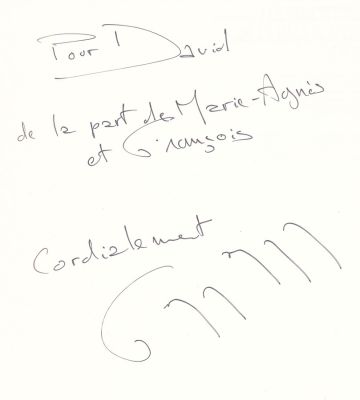 Pour David
de la part de Marie-Agnès
et François
Cordialement